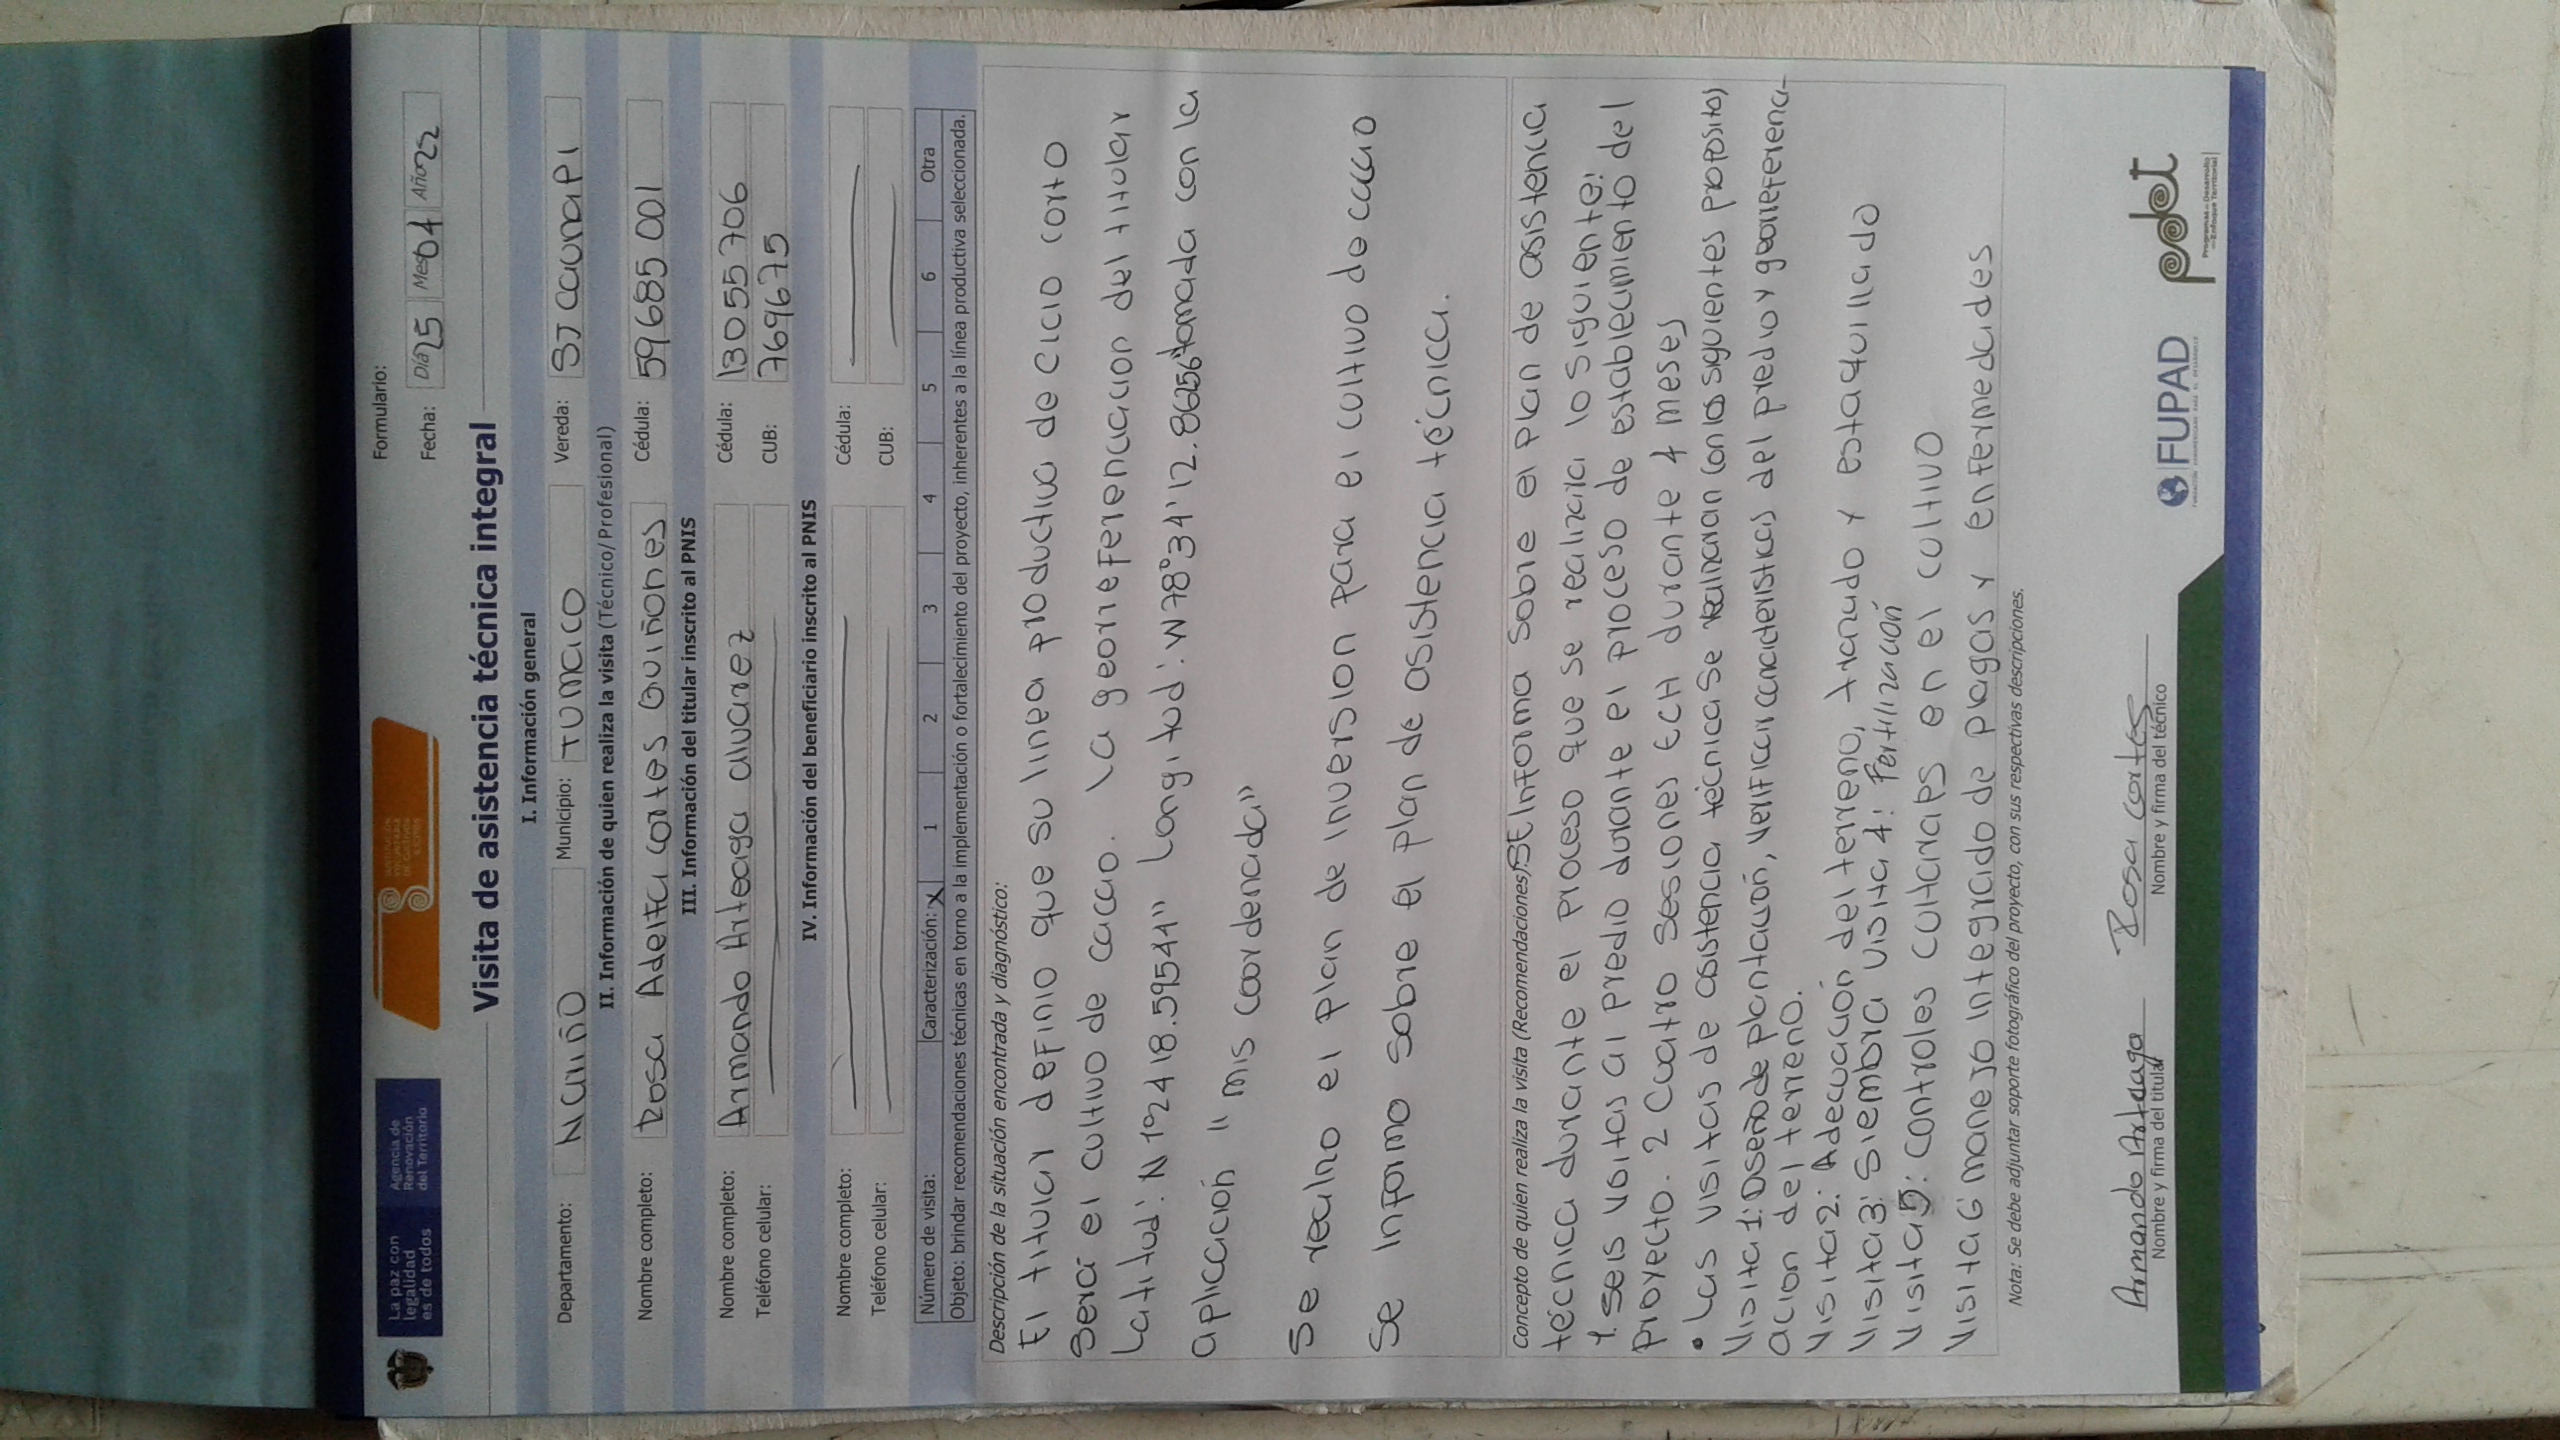 La paz con legalidad es de todos
Agencia de Renovación del Territorio
Formulario:
Fecha: Día 25 Mes 04 Año 22
Visita de asistencia técnica integral
I. Información general
Departamento: Nariño Municipio: TUMACO Vereda: SJ CaunaPi
II. Información de quien realiza la visita (Técnico/Profesional)
Nombre completo: Rosa Adelfa cortes Quiñones Cédula: 59685001
III. Información del titular inscrito al PNIS
Nombre completo: Armando Arteaga alvarez Cédula: 13055706
Teléfono celular: CUB: 7696675
IV. Información del beneficiario inscrito al PNIS
Nombre completo: Cédula:
Teléfono celular: CUB:
Número de visita: Caracterización: X 1 2 3 4 5 6 Otra
Objeto: brindar recomendaciones técnicas en torno a la implementación o fortalecimiento del proyecto, inherentes a la línea productiva seleccionada.
Descripción de la situación encontrada y diagnóstico:
El titular definio que su linea productiva de ciclo corto
Será el cultivo de cacao. La georreferenciacion del titular
Latitud: N 1°24'18.59541" Longitud: W78°34'12.86256" tomada con la
aplicación "mis coordenada"
Se realizo el plan de inversion para el cultivo de cacao
Se informo sobre el plan de asistencia técnica.
Concepto de quien realiza la visita (Recomendaciones): SE Informa Sobre el plan de asistencia
técnica durante el proceso que se realizara lo siguiente:
1. Seis visitas al predio durante el proceso de establecimiento del
proyecto. 2 Cuatro Sesiones ECA durante 4 meses
• Las visitas de asistencia técnica Se realizaran con los siguientes propositos
Visita 1: Diseño de plantación, verificar caracteristicas del predio y georreferencia-
acion del terreno.
Visita 2: Adecuación del terreno, trazado y estaquillado
Visita 3: Siembra visita 4: Fertilización
Visita 5: controles culturales en el cultivo
Visita 6 manejo integrado de plagas y enfermedades
Nota: Se debe adjuntar soporte fotográfico del proyecto, con sus respectivas descripciones.
Armando Arteaga Rosa Cortes
Nombre y firma del titular Nombre y firma del técnico
FUPAD
pdet
Programas de Desarrollo con Enfoque Territorial